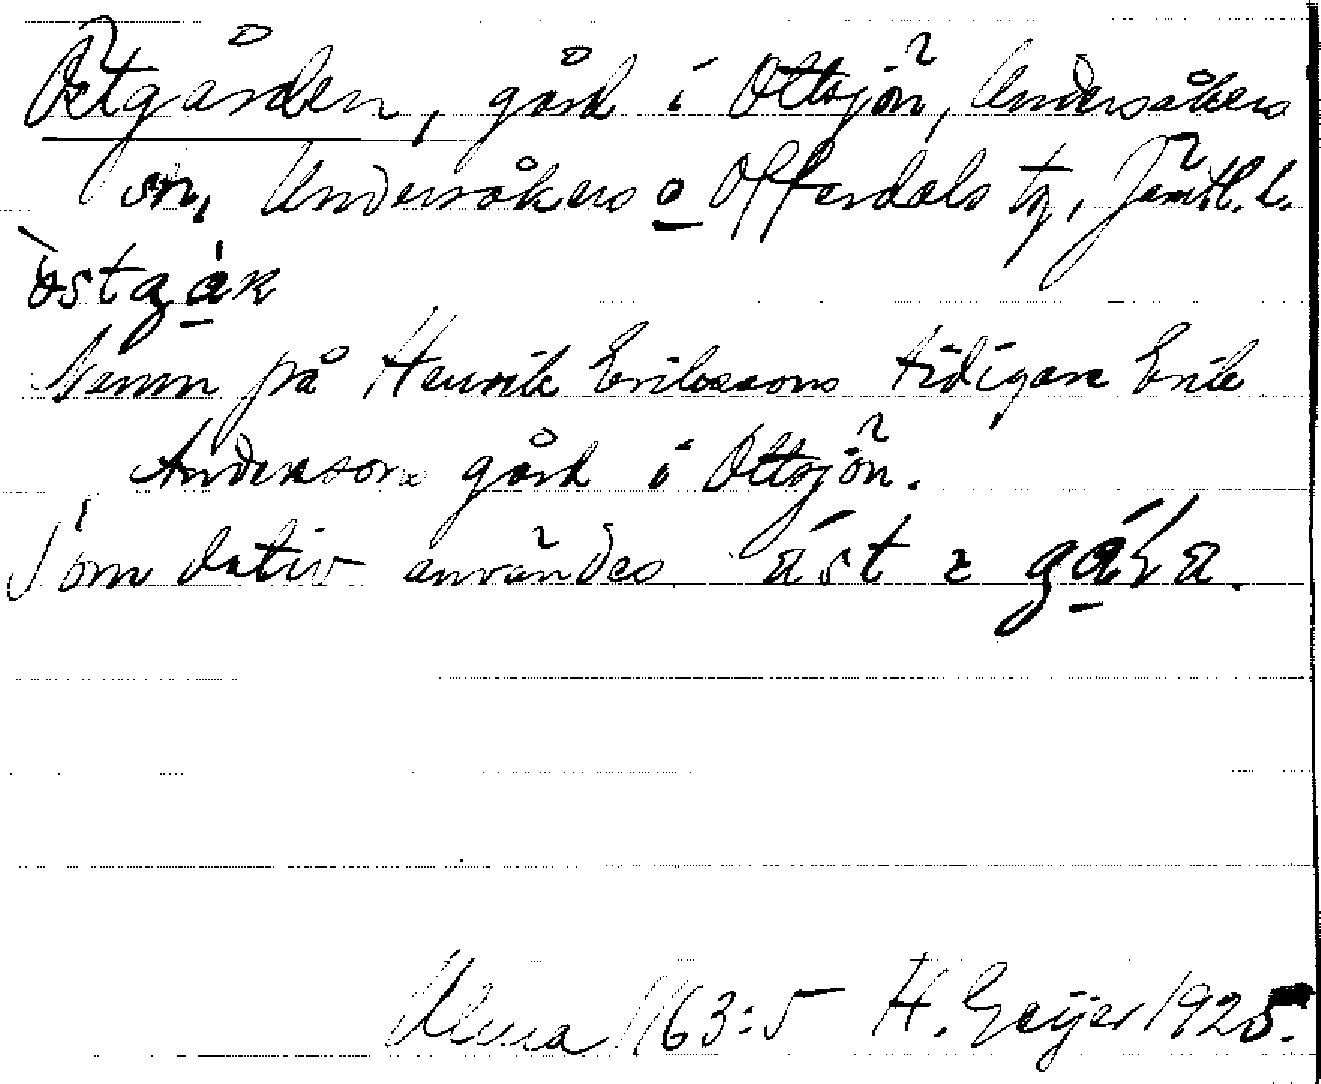 Östgården, gård i Ottsjön, Undersåkers
sn, Undersåkers o Offerdals tg, Jämtl. l.
Namn på Henrik Erikssons tidigare Erik
Anderssons gård i Ottsjön.
Som dativ användes
Ulma 1163:5 H. Geijer 1925.